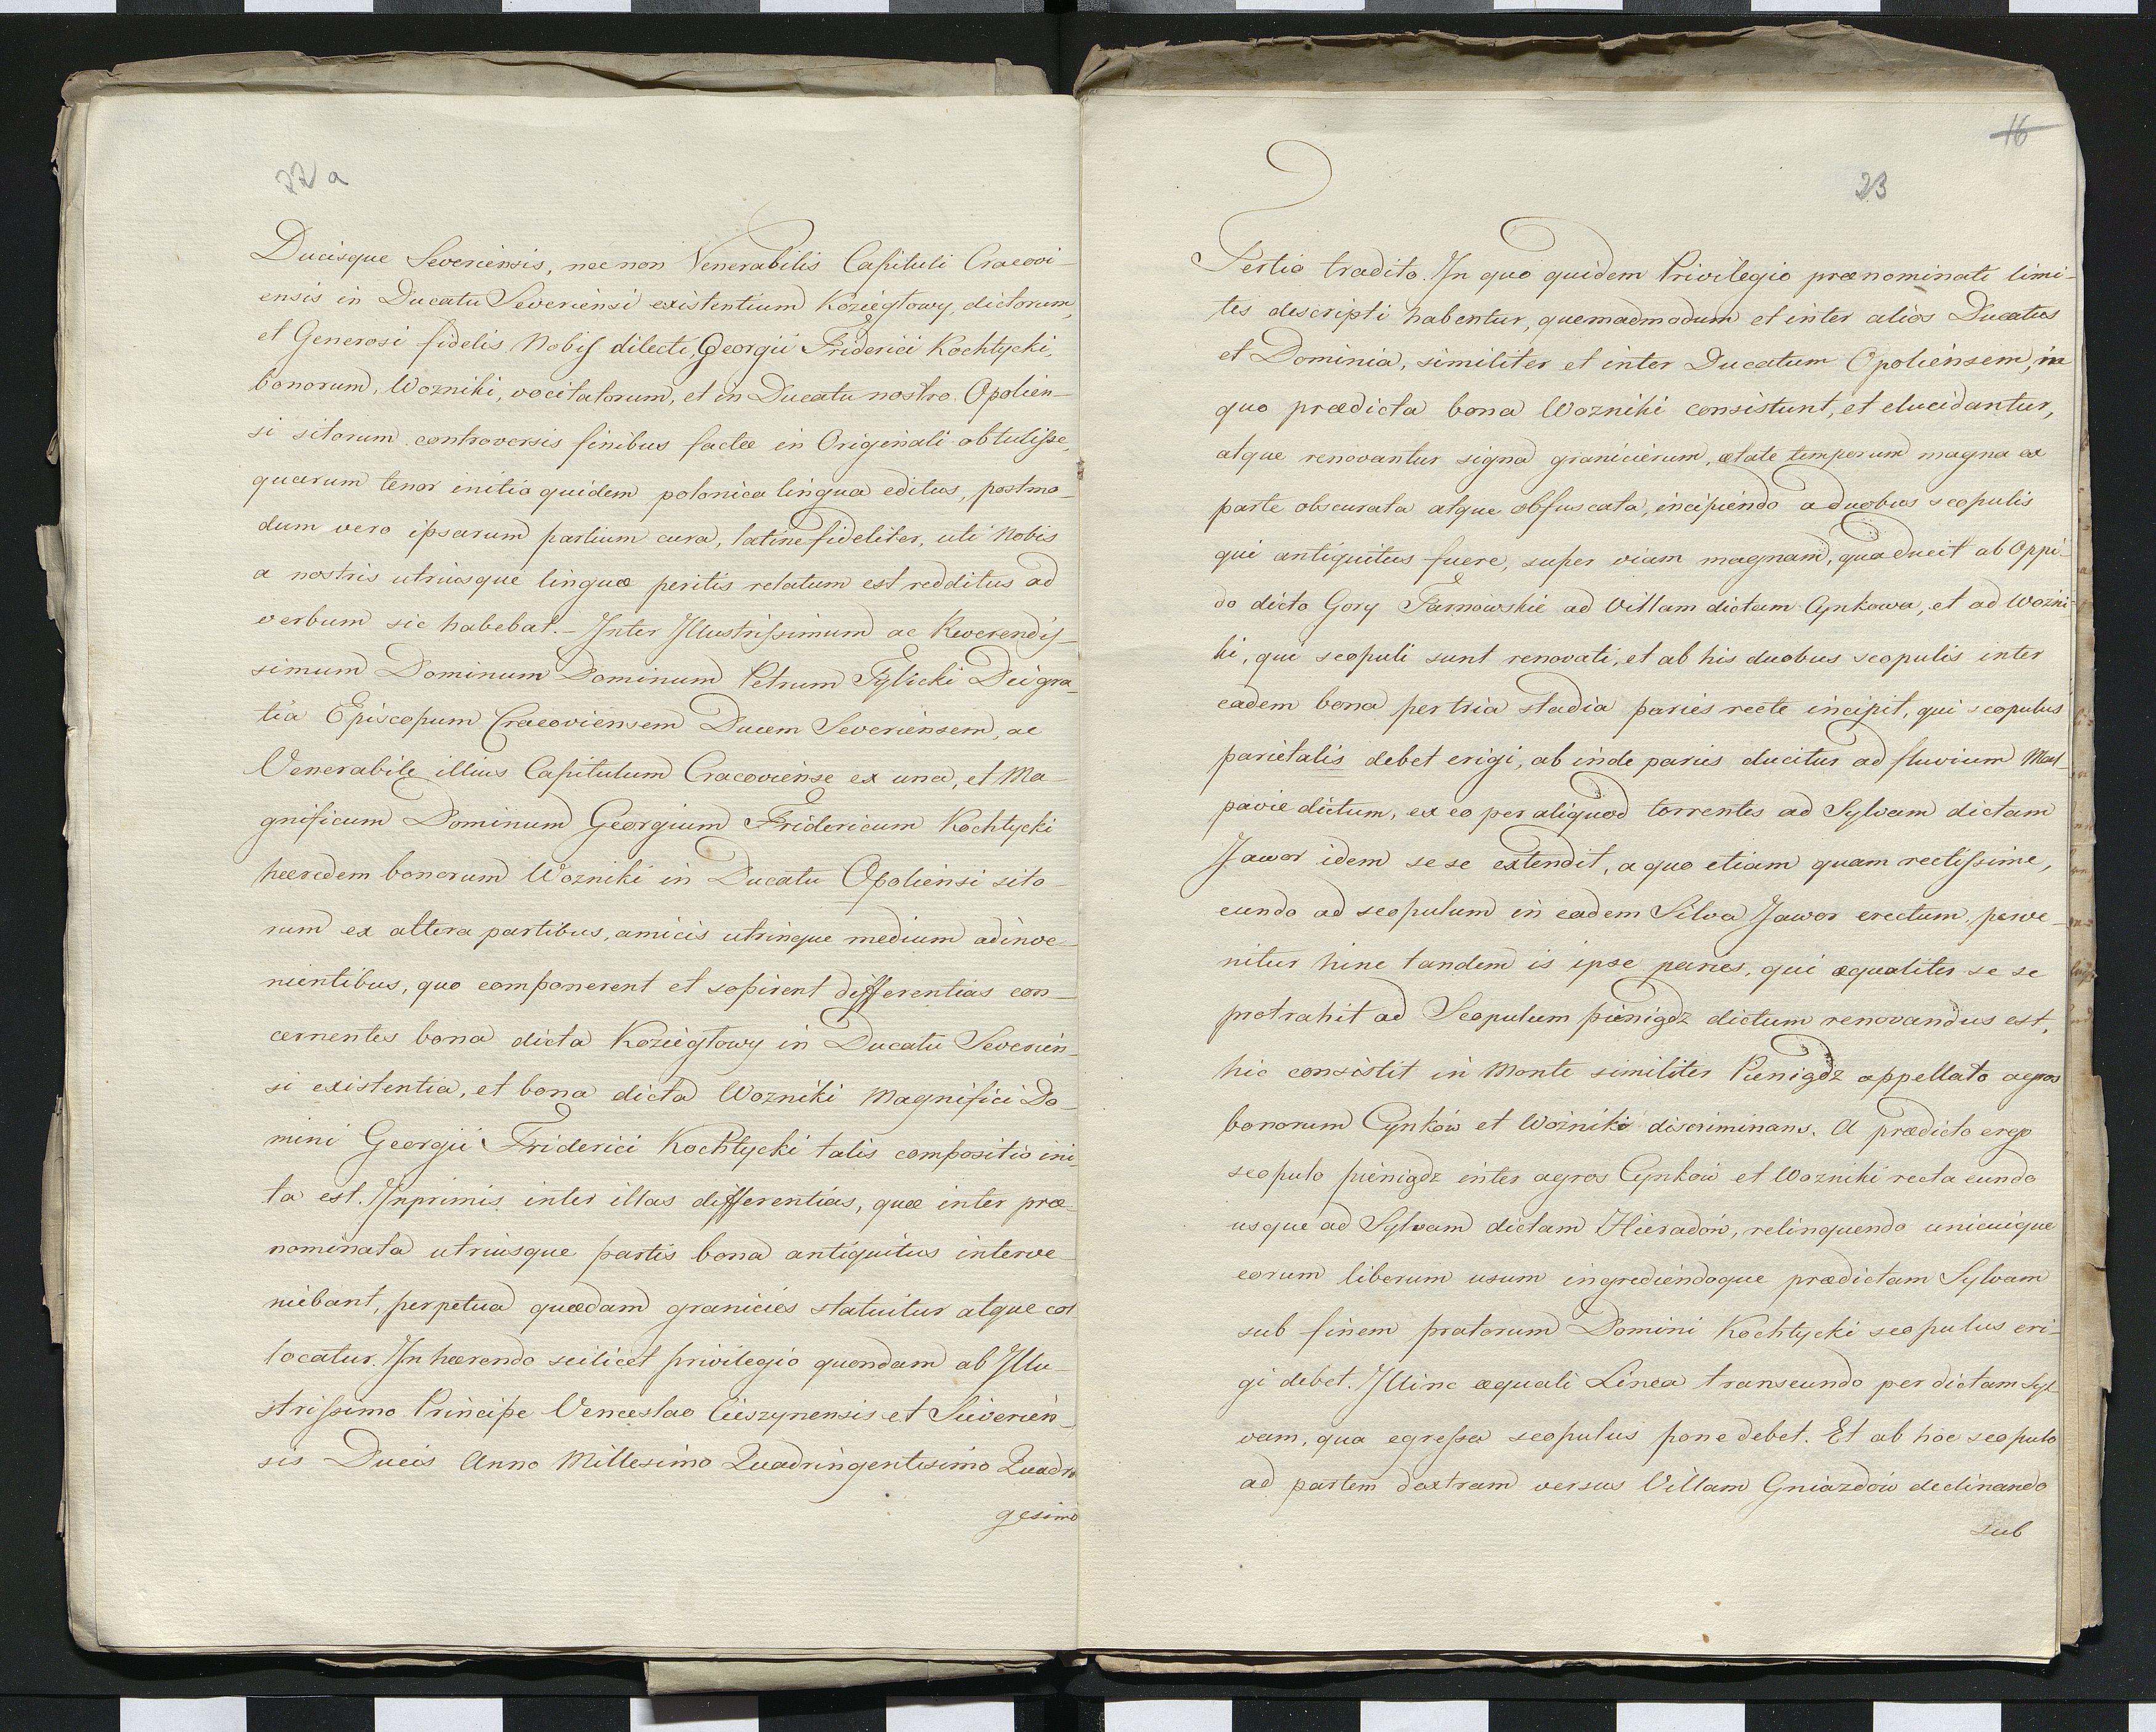 22 a
Ducisque Severiensis, nec non Venerabilis Capituli Cracovi-
ensis in Ducatu Severiensi existentium Koziegłowy, dictorum,
et Generosi fidelis Nobis dilecti, Georgii Friderici Kochtycki,
bonorum, Wozniki, vocitatorum, et in Ducatu nostro Opolien-
si sitorum controversis finibus factæ in Originali obtulisse,
quarum tenor initio quidem polonica lingua editus, postmo-
dum vero ipsarum partium cura, latine fideliter, uti Nobis
a nostris utriusque linguæ peritis relatum est redditus ad
verbum sic habebat. - Inter Illustrissimum ac Reverendis-
simum Dominum Dominum Petrum Tylicki Dei gra-
tia Episcopum Cracoviensem Ducem Severiensem, ac
Venerabile illius Capitulum Cracoviense ex una, et Ma-
gnificum Dominum Georgium Fridericum Kochtycki
hæredem bonorum Wozniki in Ducatu Opoliensi sito-
rum ex altera partibus, amicis utrinque medium adinve-
nientibus, quo componerent et sopirent differentias con-
cernentes bona dicta Koziegłowy in Ducatu Severien-
si existentia, et bona dicta Wozniki Magnifici Do-
mini Georgii Friderici Kochtycki talis compositio ini-
ta est. Inprimis inter illas differentias, quæ inter præ-
nominata utriusque partis bona antiquitus interve-
niebant, perpetua quædam granicies statuitur atque col
locatur. Inhærendo scilicet privilegio quondam ab Illu-
strissimo Principe Venceslao Cieszynensis et Sieverien-
sis Ducis Anno Millesimo Quadringentesimo Quadra
gesimo
16
23
Tertio tradito. In quo quidem Privilegio prænominati limi-
tes descripti habentur, quemadmodum et inter alios Ducatus
et Dominia, similiter et inter Ducatum Opoliensem, in
quo prædicta bona Wozniki consistunt, et elucidantur,
atque renovantur signa granicierum, ætate temporum magna ex
parte obscurata atque obfuscata, incipiendo a duobus scopulis
qui antiquitus fuere, super viam magnam, qua ducit ab Oppi-
do dicto Gory Tarnowskie ad Villam dictam Cynkowa, et ad Wozni-
ki, qui scopuli sunt renovati, et ab his duobus scopulis inter
eadem bona per tria stadia paries recte incipit, qui scopulus
parietalis debet erigi, ab inde paries ducitur ad fluvium Mal-
pavie dictum, ex eo per aliquod torrentes ad Sylvam dictam
Jawor idem se se extendit, a quo etiam quam rectissime,
eundo ad scopulum in eadem Silva Jawor erectum, perve-
nitur hinc tandem is ipse paries, qui æqualiter se se
protrahit ad Scopulum pienigdz dictum renovandus est,
hic consistit in Monte similiter Pienigdz appellato agros
bonorum Cynków et Wozniki discriminans. A prædicto ergo
scopulo pienigdz inter agros Cynków et Wozniki recta eundo
usque ad Sylvam dictam Hieradów, relinquendo unicuique
eorum liberum usum ingrediendoque prædictam Sylvam
sub finem pratorum Domini Kochtycki scopulus eri-
gi debet. Illinc æquali Linea transeundo per dictam Syl-
vam, qua egressa scopulus pone debet. Et ab hoc scopulo
ad partem dextram versus Villam Gniazdów declinando
sub